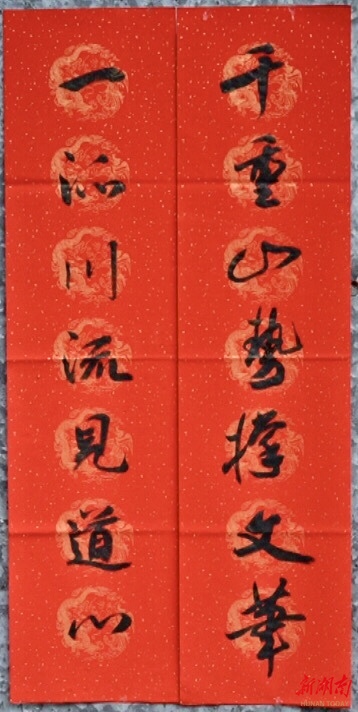 千重山勢文華
一川流見道心
新湖南
HUNAN TODAY